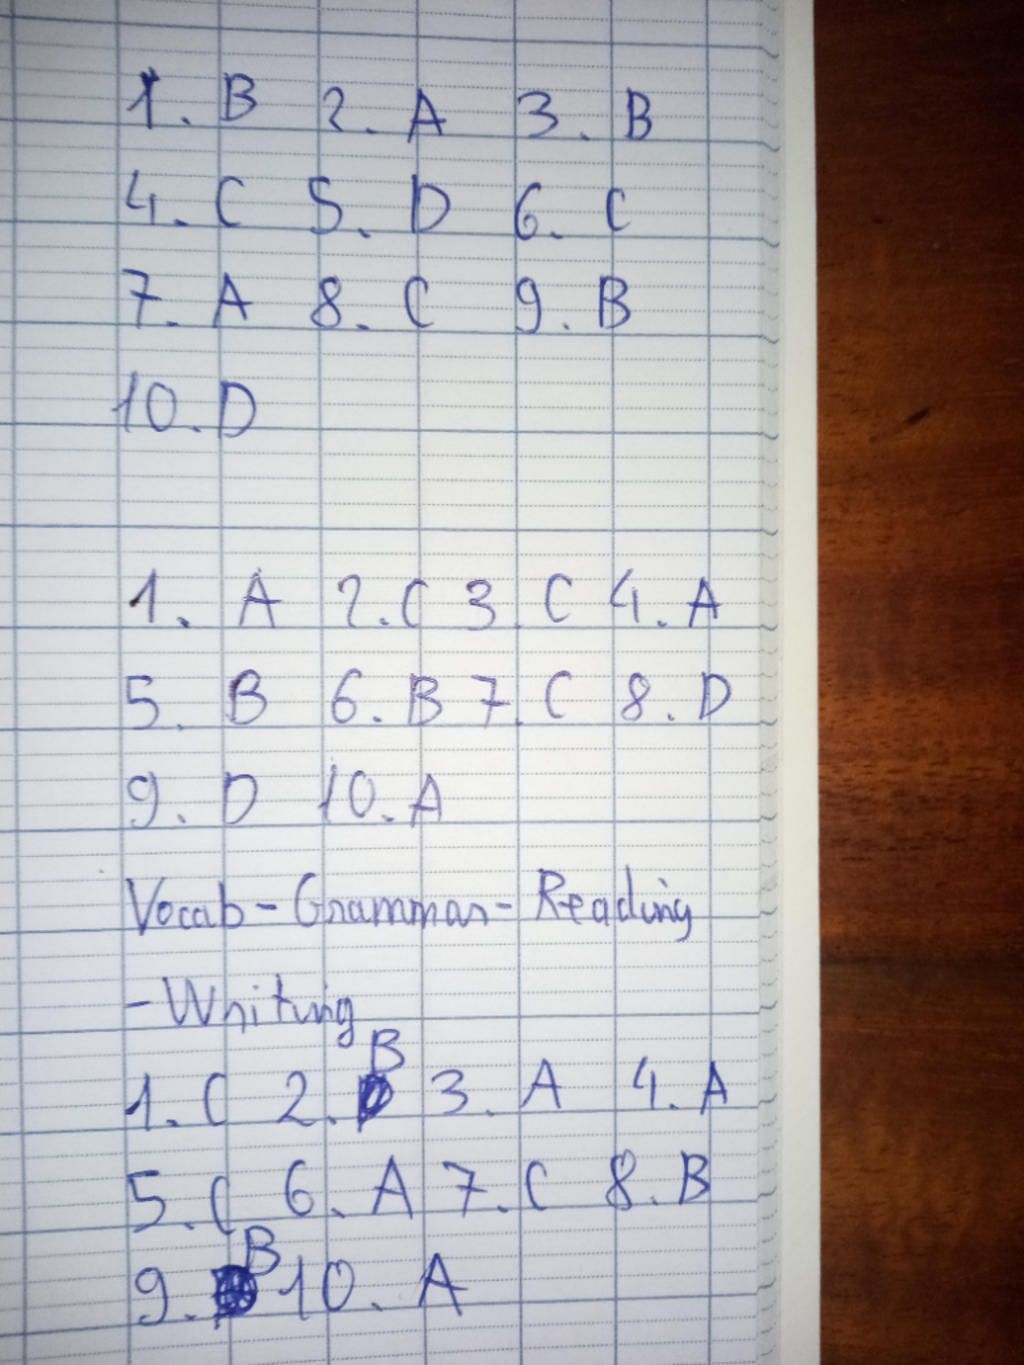 1. B 2. A 3. B
4. C 5. D 6. C
7. A 8. C 9. B
10. D
1. A 2. C 3. C 4. A
5. B 6. B 7. C 8. D
9. D 10. A
Vocab - Grammar - Reading
- Writing
1. C 2. B 3. A 4. A
5. C 6. A 7. C 8. B
9. B 10. A